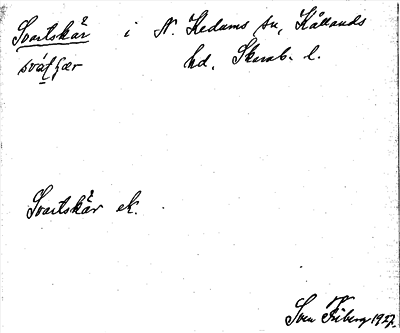 Svartskär i N. Kedums sn, Kållands
hd, Skarab. l.
Svartskär ek.
Sven Friberg 1927.